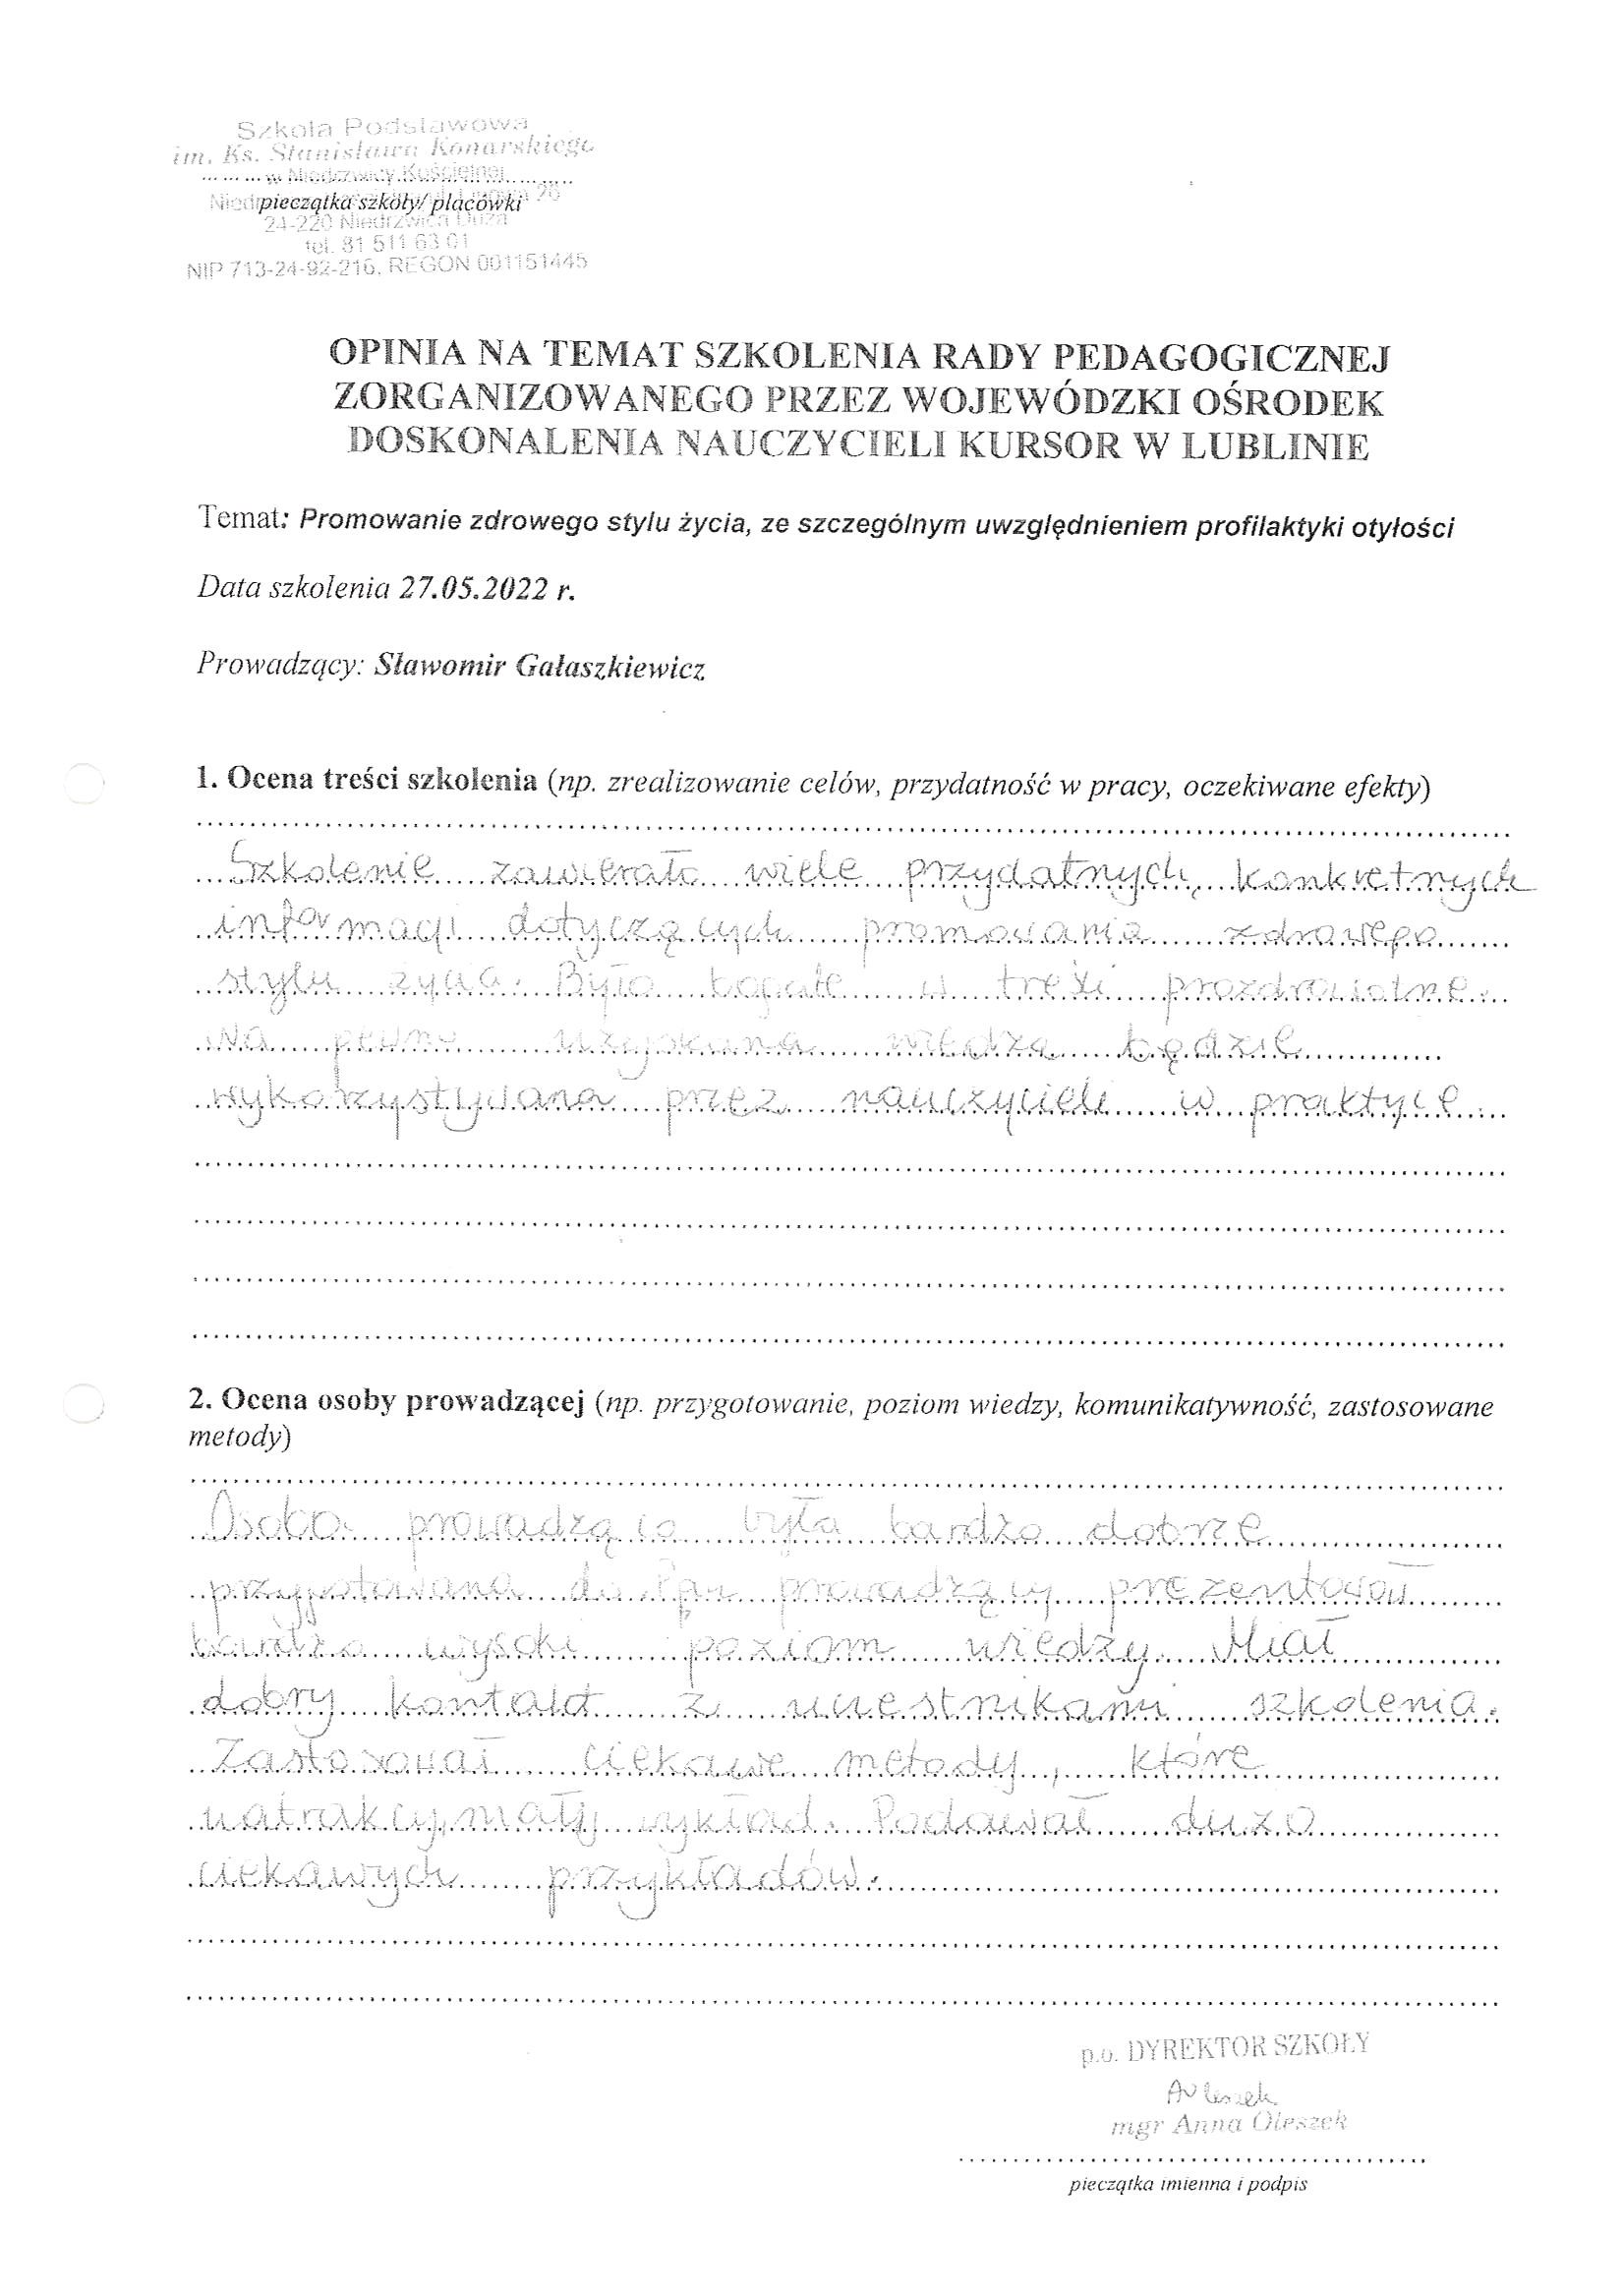 Szkoła Podstawowa
im. Ks. Stanisława Konarskiego
w Niedrzwicy Kościelnej
pieczątka szkoły/ placówki
24-220 Niedrzwica Duża
tel. 81 511 63 01
NIP 713-24-92-216, REGON 001151445
OPINIA NA TEMAT SZKOLENIA RADY PEDAGOGICZNEJ
ZORGANIZOWANEGO PRZEZ WOJEWÓDZKI OŚRODEK
DOSKONALENIA NAUCZYCIELI KURSOR W LUBLINIE
Temat: Promowanie zdrowego stylu życia, ze szczególnym uwzględnieniem profilaktyki otyłości
Data szkolenia 27.05.2022 r.
Prowadzący: Sławomir Gałaszkiewicz
1. Ocena treści szkolenia (np. zrealizowanie celów, przydatność w pracy, oczekiwane efekty)
Szkolenie zawierało wiele przydatnych, konkretnych
informacji dotyczących promowania zdrowego
stylu życia. Było bogate w treści prozdrowotne.
Na pewno uzyskana wiedza będzie
wykorzystywana przez nauczycieli w praktyce.
2. Ocena osoby prowadzącej (np. przygotowanie, poziom wiedzy, komunikatywność, zastosowane
metody)
Osoba prowadząca była bardzo dobrze
przygotowana do Pan prowadzący prezentował
bardzo wysoki poziom wiedzy. Miał
dobry kontakt z uczestnikami szkolenia.
Zastosował ciekawe metody, które
uatrakcyjniały wykład. Podawał dużo
ciekawych przykładów.
p.o. DYREKTOR SZKOŁY
AOleszek
mgr Anna Oleszek
pieczątka imienna i podpis